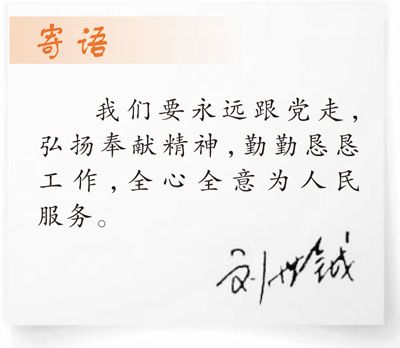 寄语
我们要永远跟党走,
弘扬奉献精神,勤勤恳恳
工作,全心全意为人民
服务。
刘世